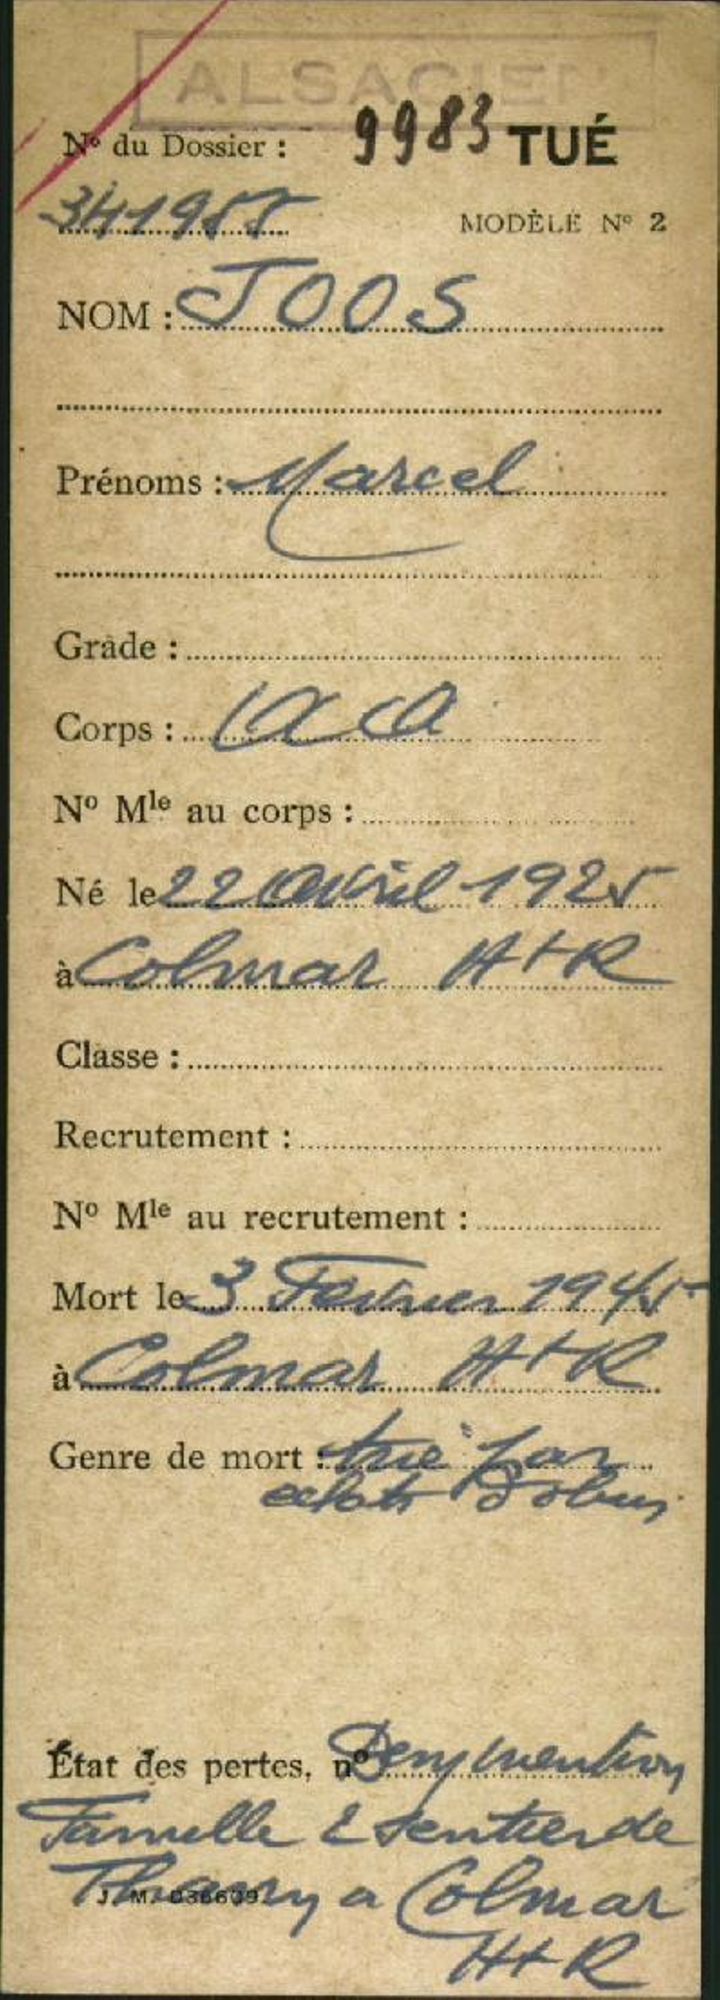 ALSACIEN
9983 TUÉ
Nº du Dossier :
341988
MODÈLE Nº 2
NOM : JOOS
Prénoms : Marcel
Grade :
Corps :
Nº Mle au corps :
Né le 22 Avril 1925
à Colmar Ht R
Classe :
Recrutement :
Nº Mle au recrutement :
Mort le 3 Fevrier 1945
à Colmar Ht R
Genre de mort : tué par
eclats d'obus
État des pertes, nº Dem mention
Famille 2 sentier de
à Colmar
J. M. 036609
Ht R